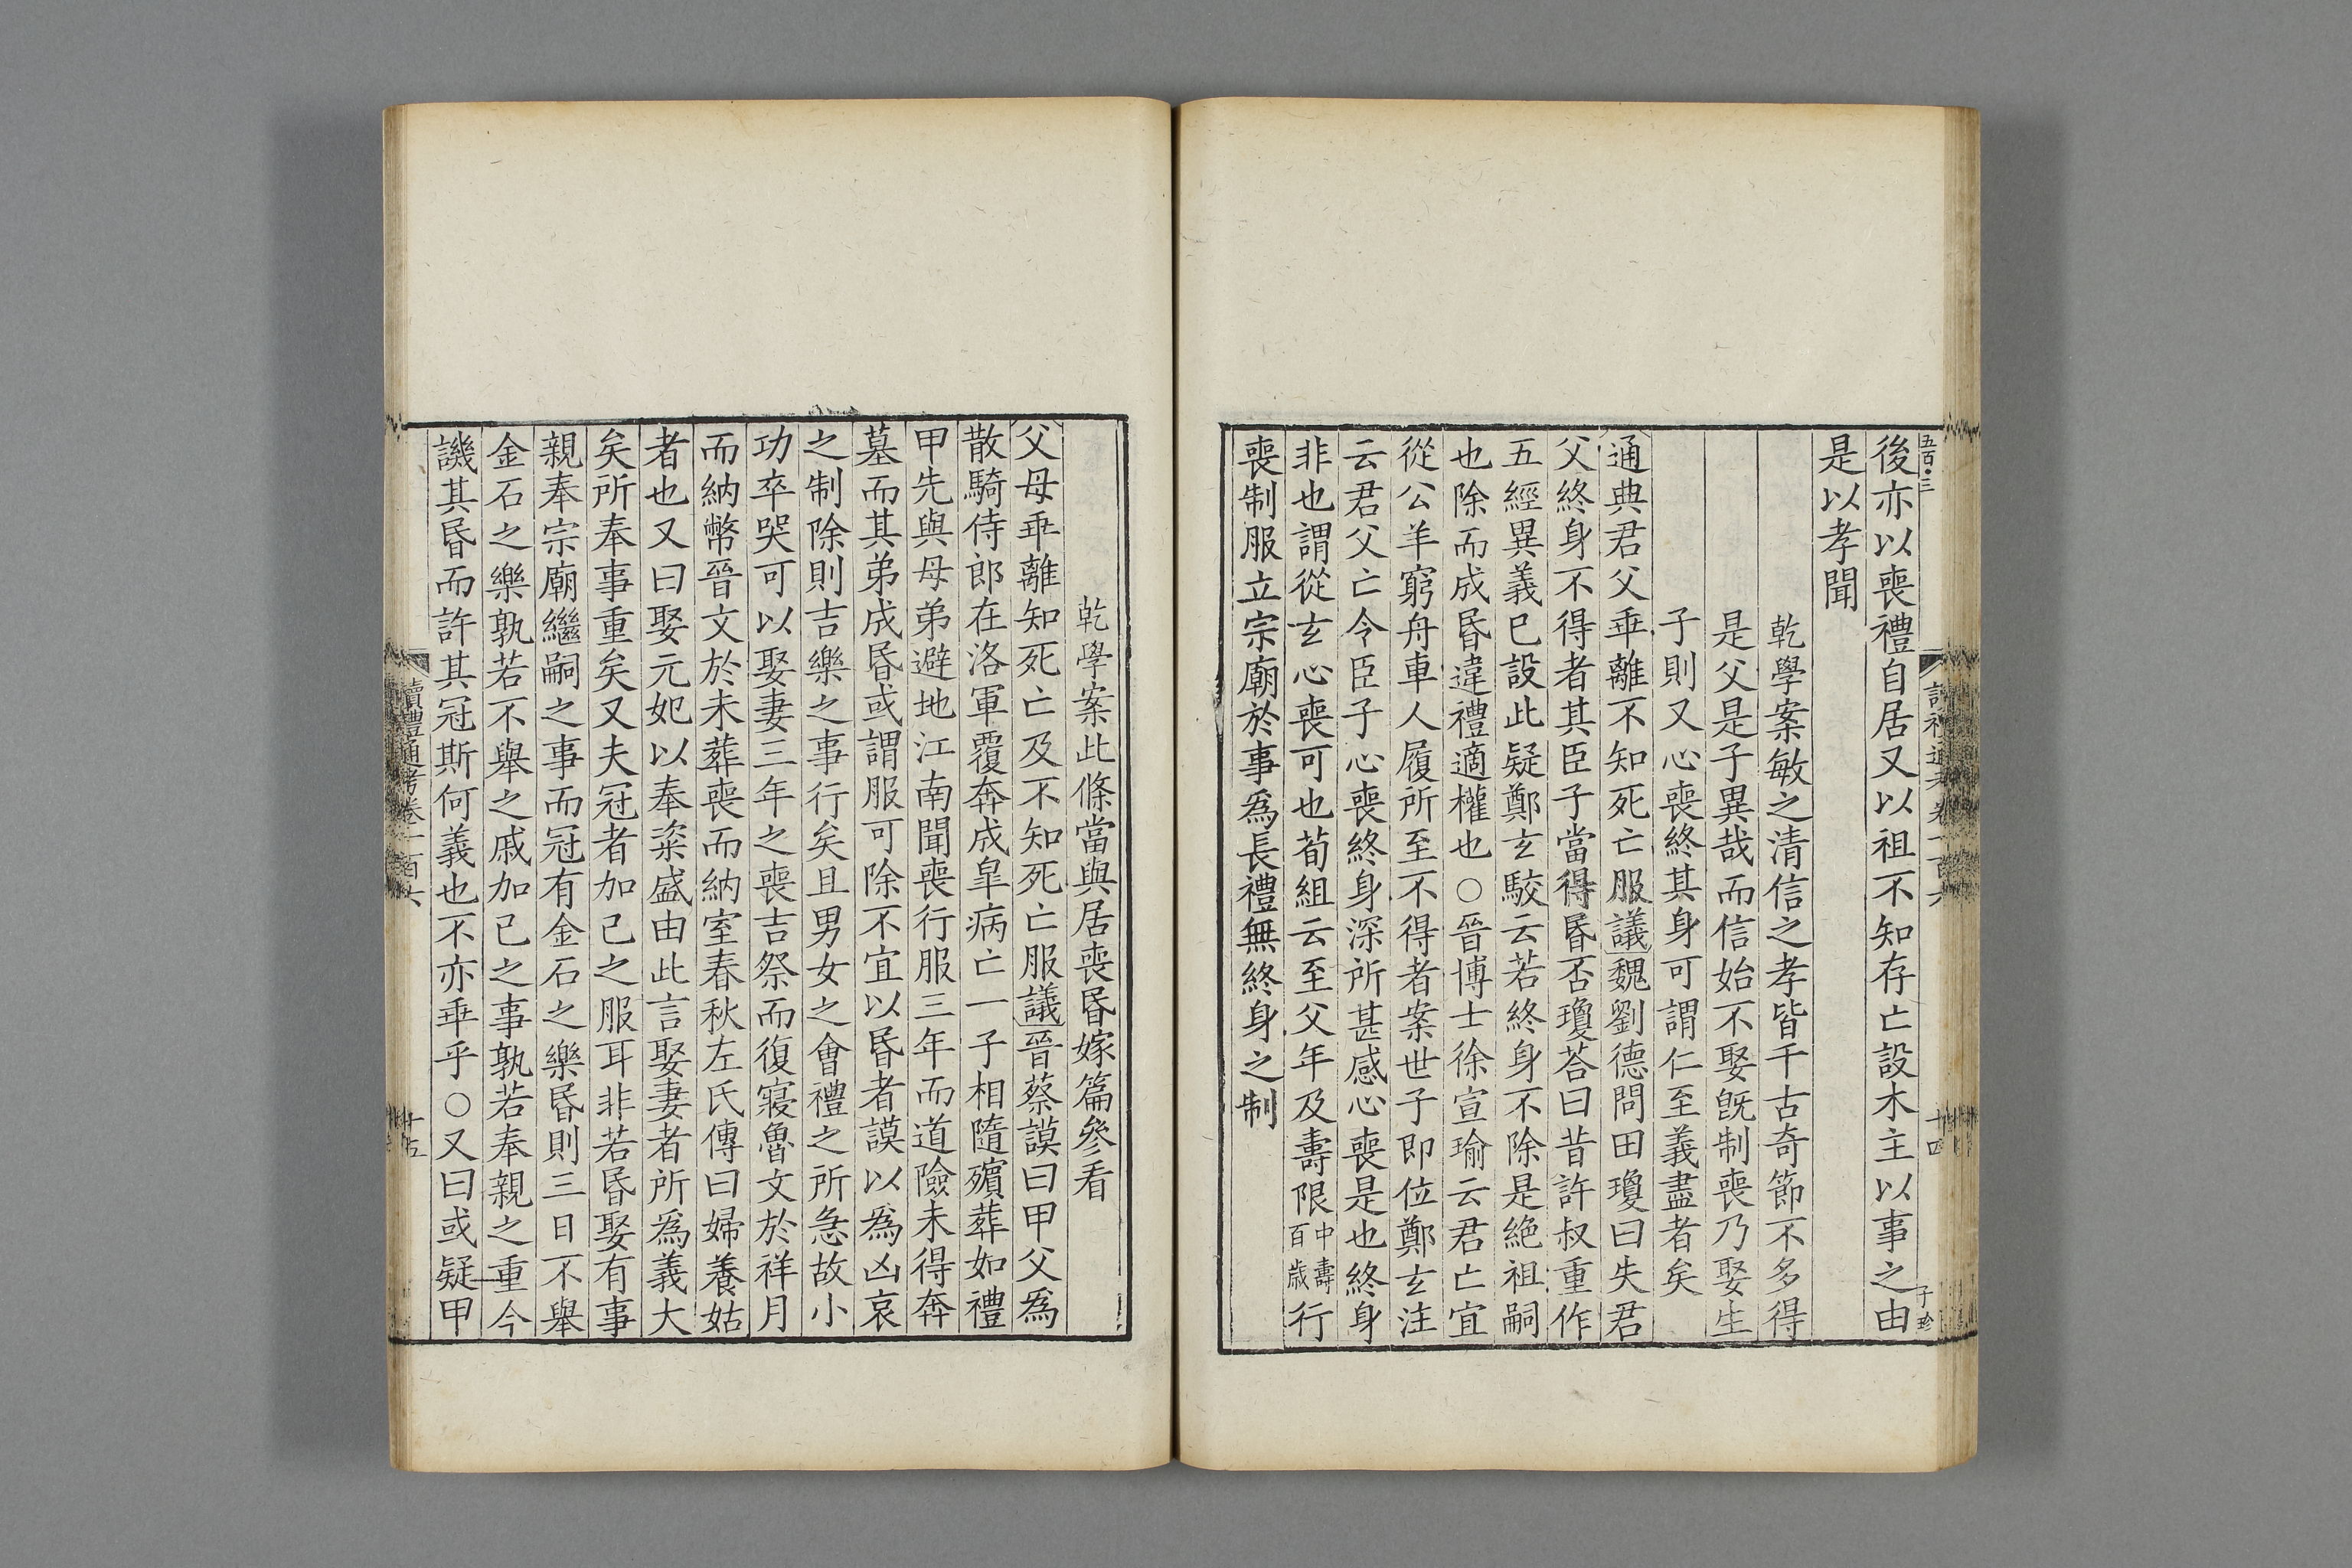 五百·三
讀禮通考卷一百六
十四
子珍
後亦以喪禮自居又以祖不知存亡設木主以事之由
是以孝聞
乾學案敏之清信之孝皆千古奇節不多得
是父是子異哉而信始不娶旣制喪乃娶生
子則又心喪終其身可謂仁至義盡者矣
通典君父乖離不知死亡服議魏劉德問田瓊曰失君
父終身不得者其臣子當得昬否瓊荅曰昔許叔重作
五經異義已設此疑鄭玄駮云若終身不除是絶祖嗣
也除而成昬違禮適權也○晉博士徐宣瑜云君亡宜
從公羊窮舟車人履所至不得者案世子即位鄭玄注
云君父亡令臣子心喪終身深所甚感心喪是也終身
非也謂從玄心喪可也荀組云至父年及壽限中壽百歲行
喪制服立宗廟於事爲長禮無終身之制
乾學案此條當與居喪昬嫁篇參看
父母乖離知死亡及不知死亡服議晉蔡謨曰甲父爲
散騎侍郎在洛軍覆奔成臯病亡一子相隨殯葬如禮
甲先與母弟避地江南聞喪行服三年而道險未得奔
墓而其弟成昬或謂服可除不宜以昬者謨以爲凶哀
之制除則吉樂之事行矣且男女之會禮之所急故小
功卒哭可以娶妻三年之喪吉祭而復寢魯文於祥月
而納幣晉文於未葬喪而納室春秋左氏傳曰婦養姑
者也又曰娶元妃以奉粢盛由此言娶妻者所爲義大
矣所奉事重矣又夫冠者加己之服耳非若昬娶有事
親奉宗廟繼嗣之事而冠有金石之樂昬則三日不舉
金石之樂孰若不舉之戚加己之事孰若奉親之重今
譏其昬而許其冠斯何義也不亦乖乎○又曰或疑甲
讀禮通考卷一百六
十五